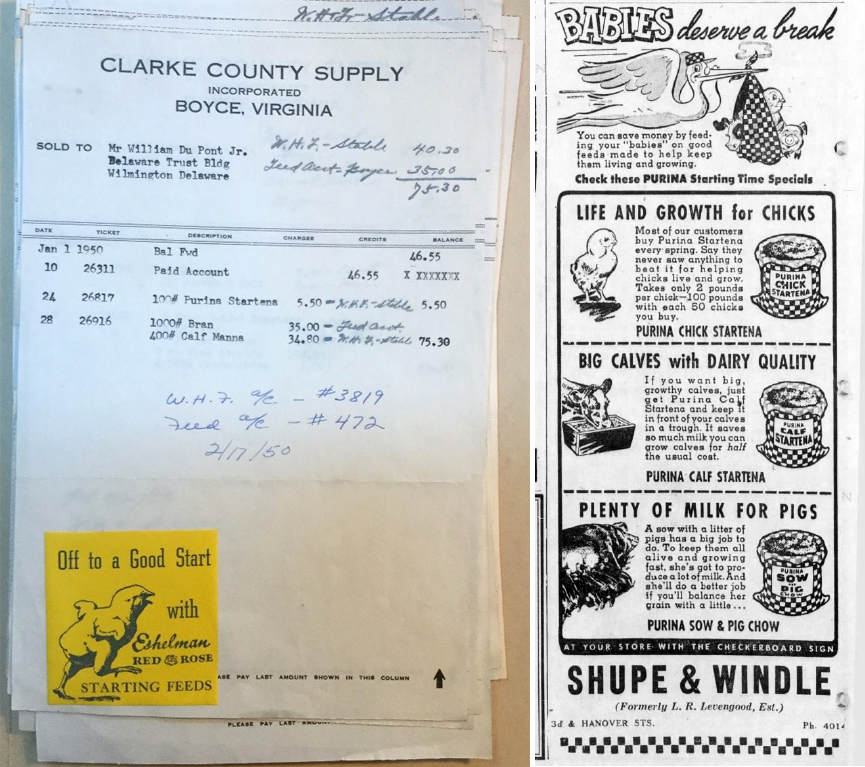 W.H.F. Stable
CLARKE COUNTY SUPPLY
INCORPORATED
BOYCE, VIRGINIA
SOLD TO Mr William Du Pont Jr.
Belaware Trust Bldg
Wilmington Delaware
W.H.F. - Stable 40.30
Feed Acct - 35.00
75.30
DATE TICKET DESCRIPTION CHARGES CREDITS BALANCE
Jan 1 1950 Bal Fwd 46.55
10 26311 Paid Account 46.55 X XXXXXXX
24 26817 100# Purina Startena 5.50 - W.H.F. - Stable 5.50
28 26916 1000# Bran 35.00 - Feed Acct.
400# Calf Manna 34.80 - W.H.F. - Stable 75.30
W.H.F. a/c - #3819
Feed a/c - #472
2/17/50
Off to a Good Start
with
Eshelman
RED ROSE
STARTING FEEDS
ASE PAY LAST AMOUNT SHOWN IN THIS COLUMN
PLEASE PAY LAST
BABIES deserve a break
You can save money by feed-
ing your "babies" on good
feeds made to help keep
them living and growing.
Check these PURINA Starting Time Specials
LIFE AND GROWTH for CHICKS
Most of our customers
buy Purina Startena
every spring. Say they
never saw anything to
beat it for helping
chicks live and grow.
Takes only 2 pounds
per chick—100 pounds
with each 50 chicks
you buy.
PURINA
CHICK
STARTENA
PURINA CHICK STARTENA
BIG CALVES with DAIRY QUALITY
If you want big,
growthy calves, just
get Purina Calf
Startena and keep it
in front of your calves
in a trough. It saves
so much milk you can
grow calves for half
the usual cost.
PURINA
CALF
STARTENA
PURINA CALF STARTENA
PLENTY OF MILK FOR PIGS
A sow with a litter of
pigs has a big job to
do. To keep them all
alive and growing
fast, she's got to pro-
duce a lot of milk. And
she'll do a better job
if you'll balance her
grain with a little...
PURINA
SOW
AND
PIG
CHOW
PURINA SOW & PIG CHOW
AT YOUR STORE WITH THE CHECKERBOARD SIGN
SHUPE & WINDLE
(Formerly L. R. Levengood, Est.)
3d & HANOVER STS. Ph. 4014